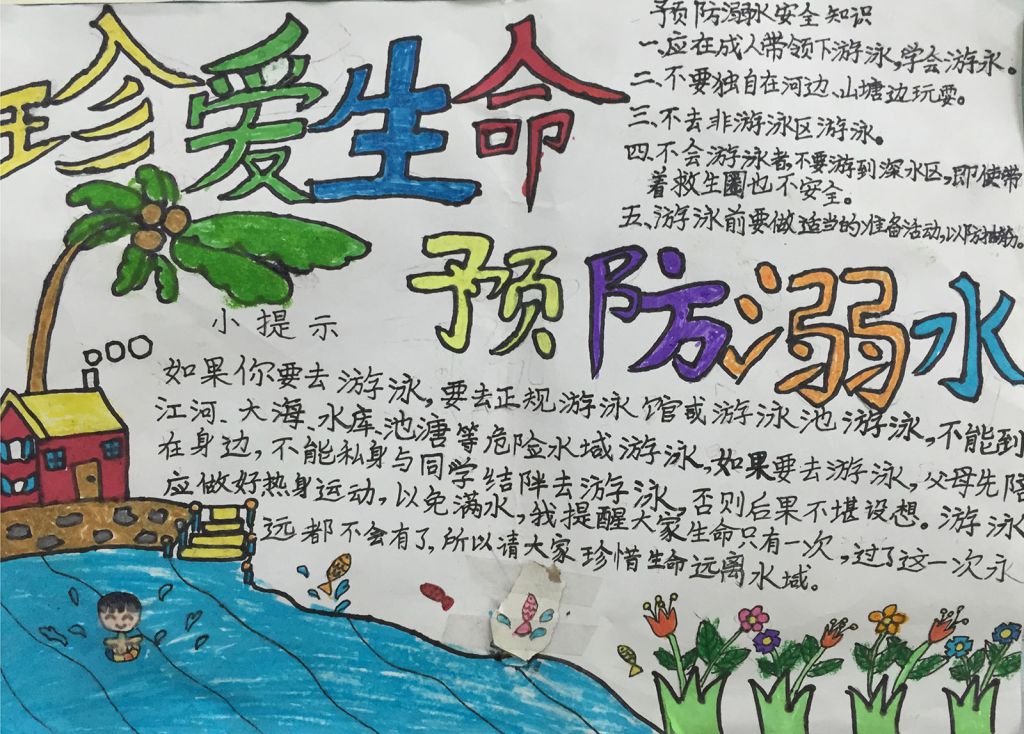 珍爱生命
预防溺水安全知识
一、应在成人带领下游泳,学会游泳。
二、不要独自在河边、山塘边玩耍。
三、不去非游泳区游泳。
四、不会游泳者,不要游到深水区,即使带
着救生圈也不安全。
五、游泳前要做适当的准备活动,以防抽筋。
预防溺水
小提示
如果你要去游泳,要去正规游泳馆或游泳池游泳,不能到
江河、大海、水库、池溏等危险水域游泳,如果要去游泳,父母先陪
在身边,不能私身与同学结阵去游泳,否则后果不堪设想。游泳
应做好热身运动,以免满水,我提醒大家生命只有一次,过了这一次永
远都不会有了,所以请大家珍惜生命远离水域。